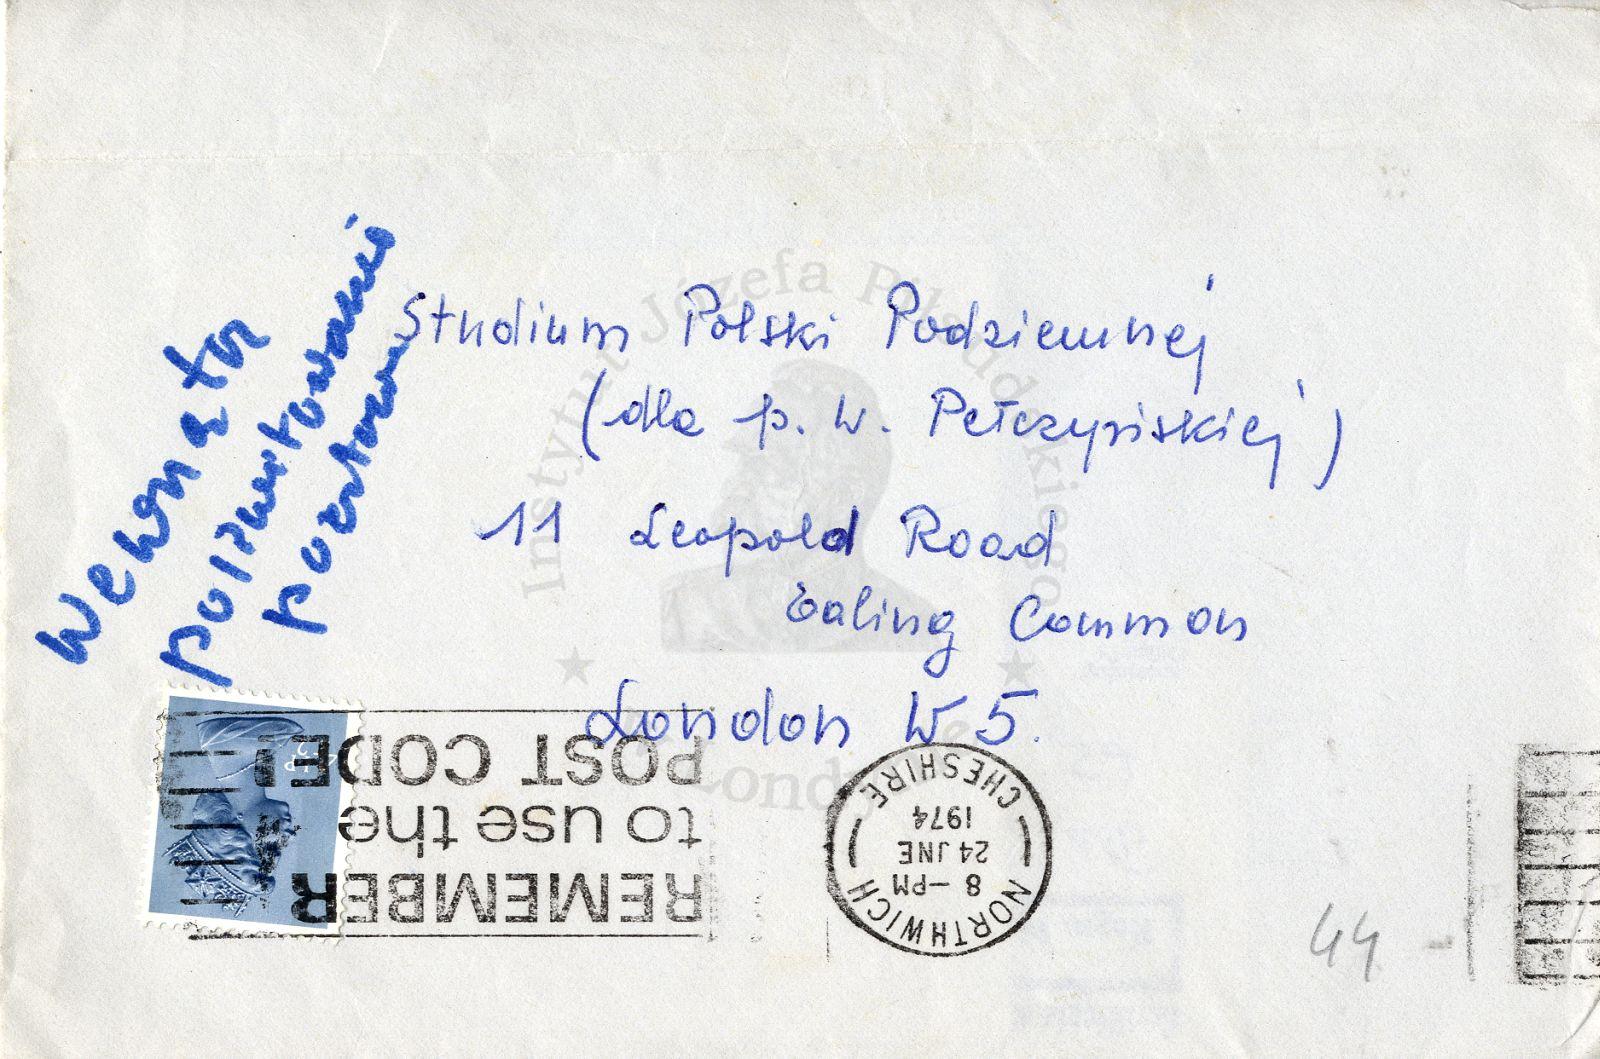 Wewnątrz
pokwitowanie
pocztowe
Studium Polski Podziemnej
(dla p. W. Pełczyńskiej)
11 Leopold Road
Ealing Common
London W5.
Instytut Józefa Piłsudskiego
w Londynie
REMEMBER
to use the
POST CODE!
NORTHWICH
8 - PM
24 JNE
1974
CHESHIRE
44